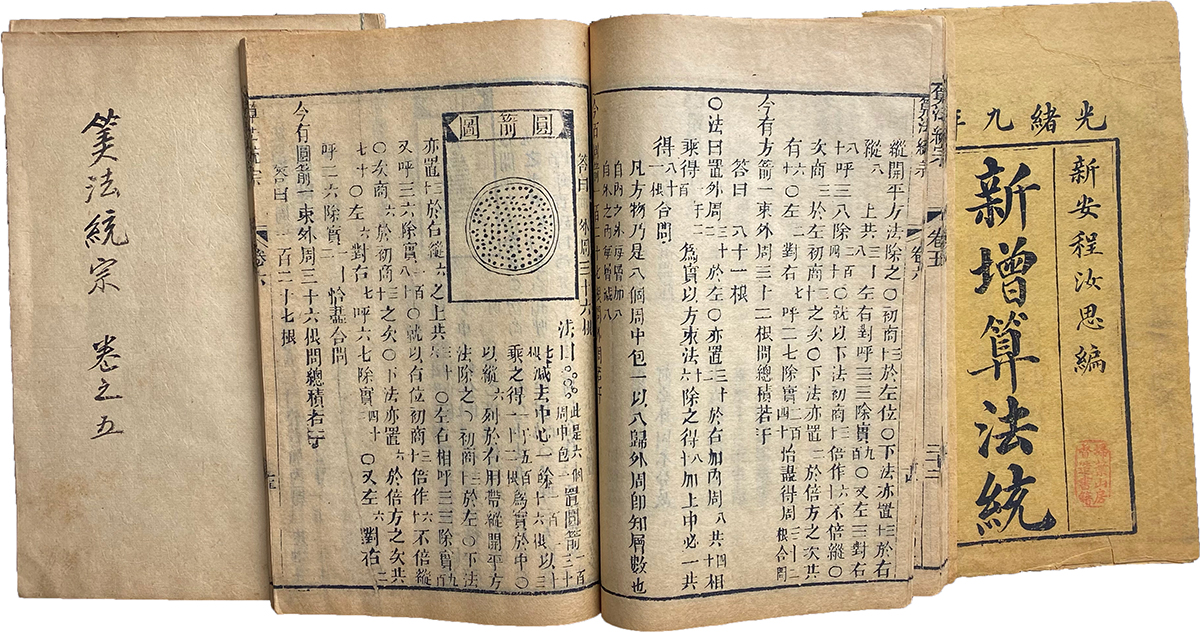 光緒九年
新安程汝思編
新增算法統
算法統宗
卷五
縱開平方法除之〇初商三十於左位〇下法亦置三十於右
縱八上共三十八左右對呼三三除實九百〇又左三對右
八呼三八除二百四十〇就以下法初商三十倍作六十不倍縱〇
次商二於左初商三十之次〇下法亦置二於倍方之次共
有六十〇左二對右七呼二七除實一百四十恰盡得周三十二根合問
今有方箭一束外周三十二根問總積若干
答曰八十一根
〇法曰置外周三十二於左〇亦置三十二於右加內周八共四十相
乘得一千二百八十為實以方束法十六除之得八十加上中心一共
得八十一根合問
凡方物乃是八個周中包一以八歸外周即知層數也
圓箭圖
答曰
法曰
此是六個周中包一
置圓箭一百二十
七根減去中心一餘一百二十六俱以十二
乘之得一千五百一十二根為實於中〇
以縱六列於右用帶縱開平方
法除之〇初商三十於左〇下法
亦置三十於右縱六之上共三十六〇左右相呼三三除實九百
又呼三六除實一百八十〇就以右位初商三十倍作六十不倍縱
〇次商六於初商三十之次〇下法亦置六於倍方之次共
七十二〇左六對右七呼六七除實四百二十〇又左六對右二
呼二六除實一十二恰盡合問
今有圓箭一束外周三十六根問總積若干
答曰一百二十七根
筭法統宗 卷之五